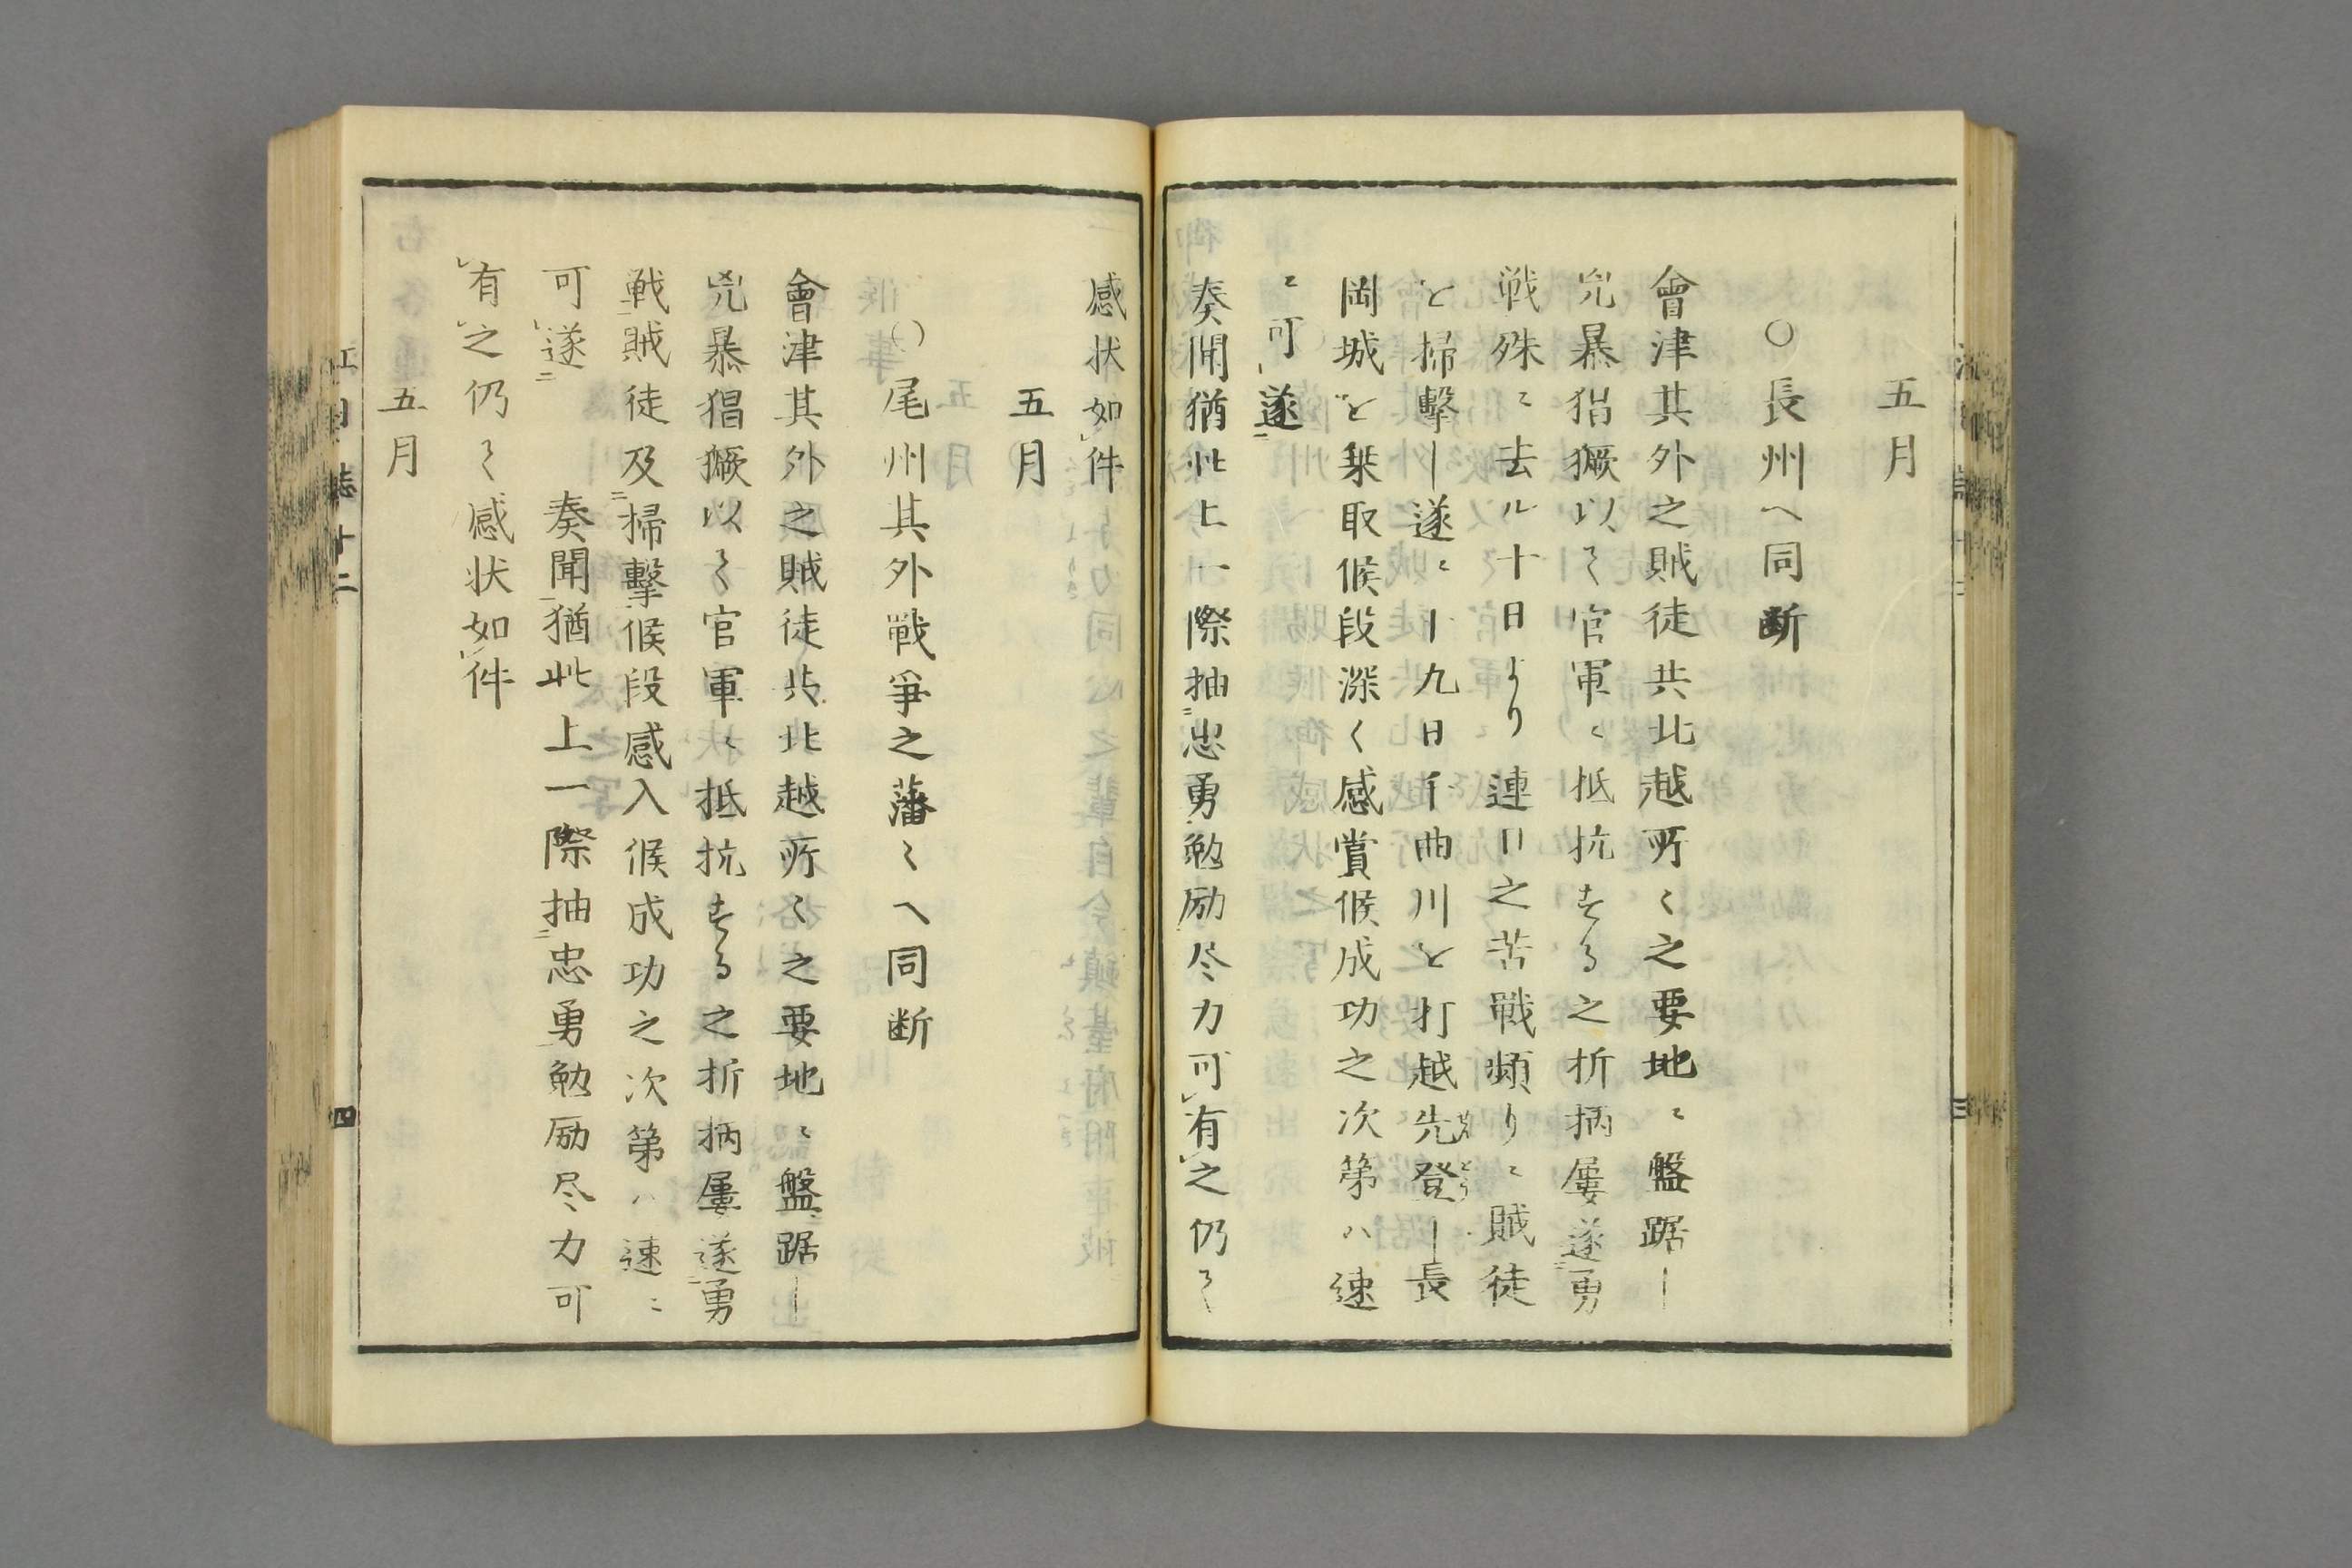 五月
〇長州へ同断
會津其外之賊徒共北越所〻之要地ニ盤踞し
兇暴猖獗以て官軍ニ抵抗する之折柄屢遂勇
戦殊ニ去ル十日より連日之苦戦頻りニ賊徒
を掃撃し遂ニ十九日千曲川を打越先登し長
岡城を乗取候段深く感賞候成功之次第ハ速
ニ可遂
奏聞猶此上一際抽忠勇勉励尽力可有之仍て
感状如件
五月
〇尾州其外戦争之藩〻へ同断
會津其外之賊徒共北越所〻之要地ニ盤踞し
兇暴猖獗以て官軍ニ抵抗する之折柄屢遂勇
戦賊徒及掃撃候段感入候成功之次第ハ速ニ
可遂　奏聞猶此上一際抽忠勇勉励尽力可
有之仍て感状如件
五月
誌十二
四